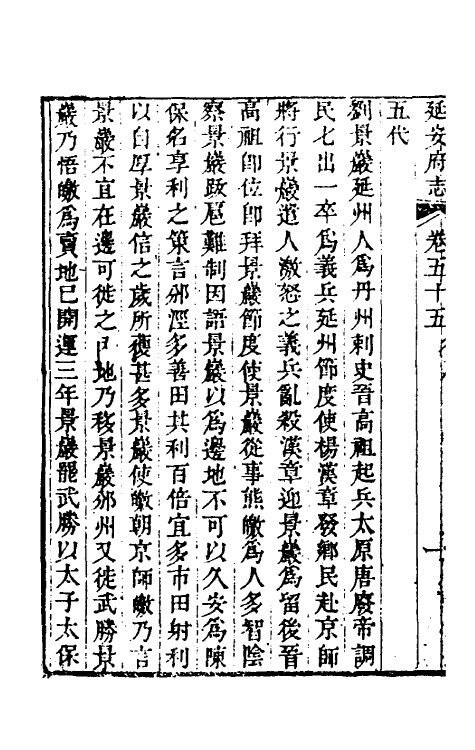 延安府志 卷五十五 一
五代
劉景巖延州人爲丹州刺史晉高祖起兵太原唐廢帝調
民七出一卒爲義兵延州節度使楊漢章發鄉民赴京師
將行景巖遣人激怒之義兵亂殺漢章迎景巖爲留後晉
高祖卽位卽拜景巖節度使景巖從事熊皦爲人多智陰
察景巖跋扈難制因語景巖以爲邊地不可以久安爲陳
保名享利之策言邠涇多善田其利百倍宜多市田射利
以自厚景巖信之歲所穫甚多景巖使皦朝京師皦乃言
景巖不宜在邊可徙之內地乃移景巖邠州又徙武勝景
巖乃悟皦爲賣地已開運三年景巖罷武勝以太子太保